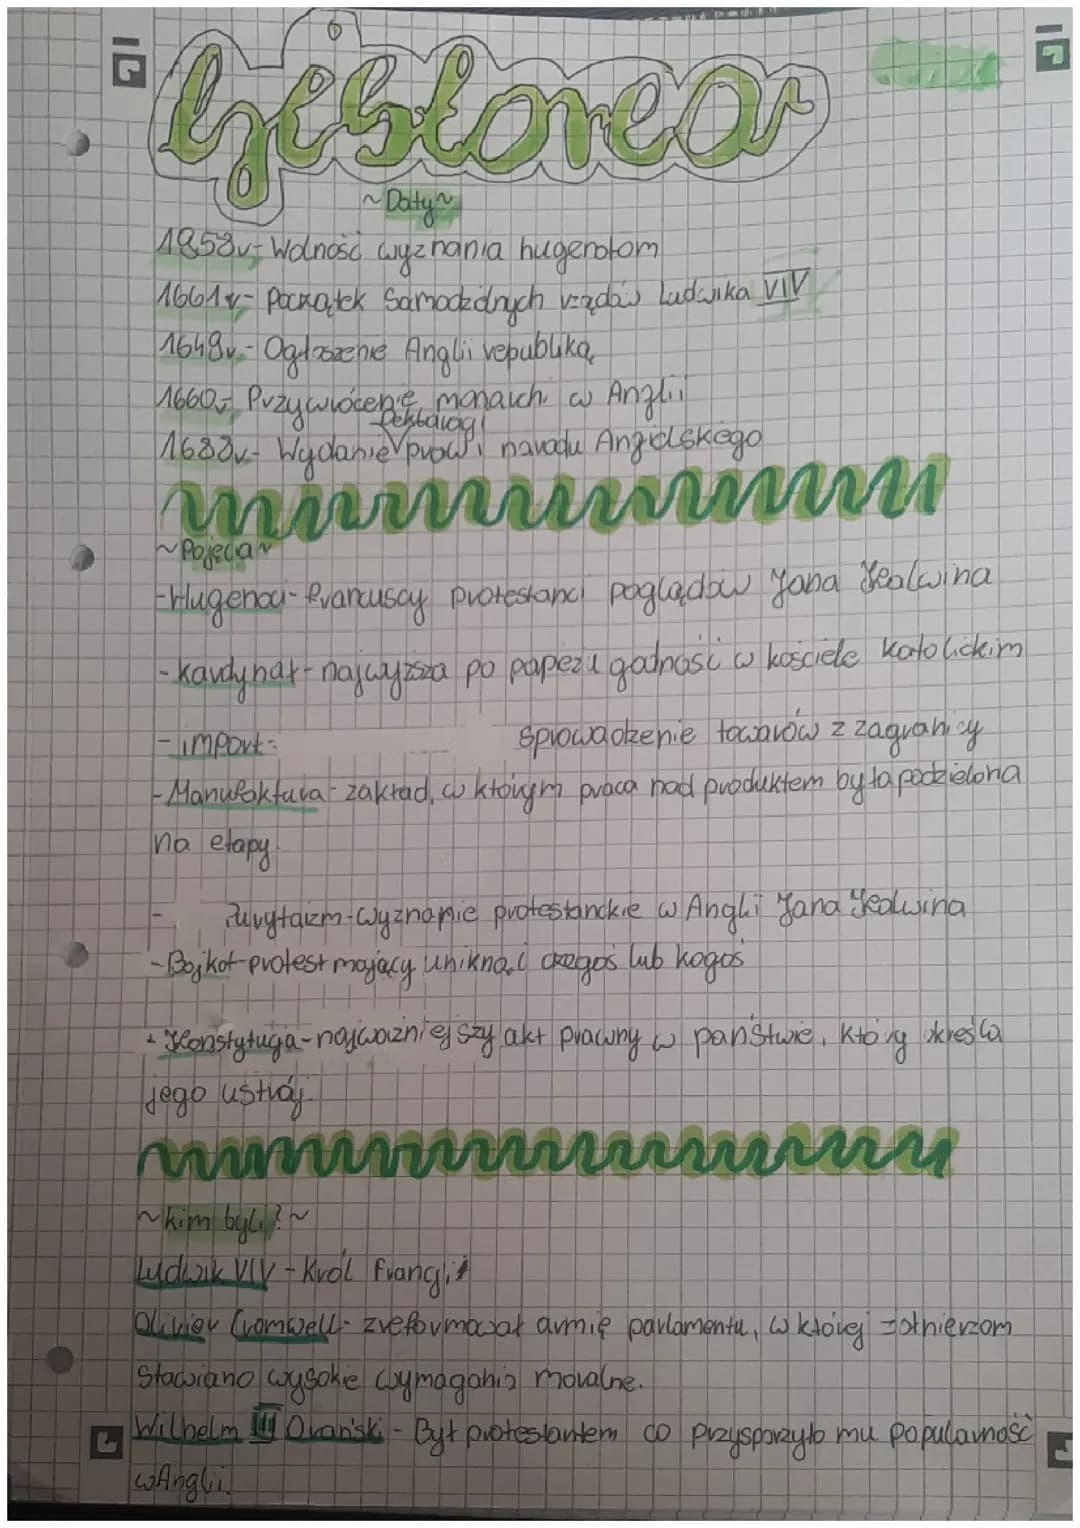 historea
~Daty~
1858r- Wolność wyznania hugenotom
1661r- Początek samodzielnych rządów Ludwika VIV
1649r.- Ogłoszenie Anglii republiką
1660r- Przywrócenie monarchi w Anglii
Deklaracji
1688r- Wydanie praw i narodu Angielskiego
~Pojęcia~
-Hugenoci- francuscy protestanci poglądów Jana Kalwina
- kardynał- najwyższa po papieżu godność w kościele katolickim
- import- sprowadzenie towarów z zagranicy
- Manufaktura- zakład, w którym praca nad produktem była podzielona
na etapy.
- Purytaizm-wyznanie protestanckie w Anglii Jana Kalwina
-Bojkot-protest mający uniknąć czegoś lub kogoś
- Konstytucja- najważniejszy akt prawny w państwie, który określa
jego ustrój.
~kim byli?~
Ludwik VIV - Król Francji
Olivier Cromwell- zreformował armię parlamentu, w której żołnierzom
stawiano wysokie wymagania moralne.
Wilhelm III Orański - Był protestantem co przysporzyło mu popularność
w Anglii.